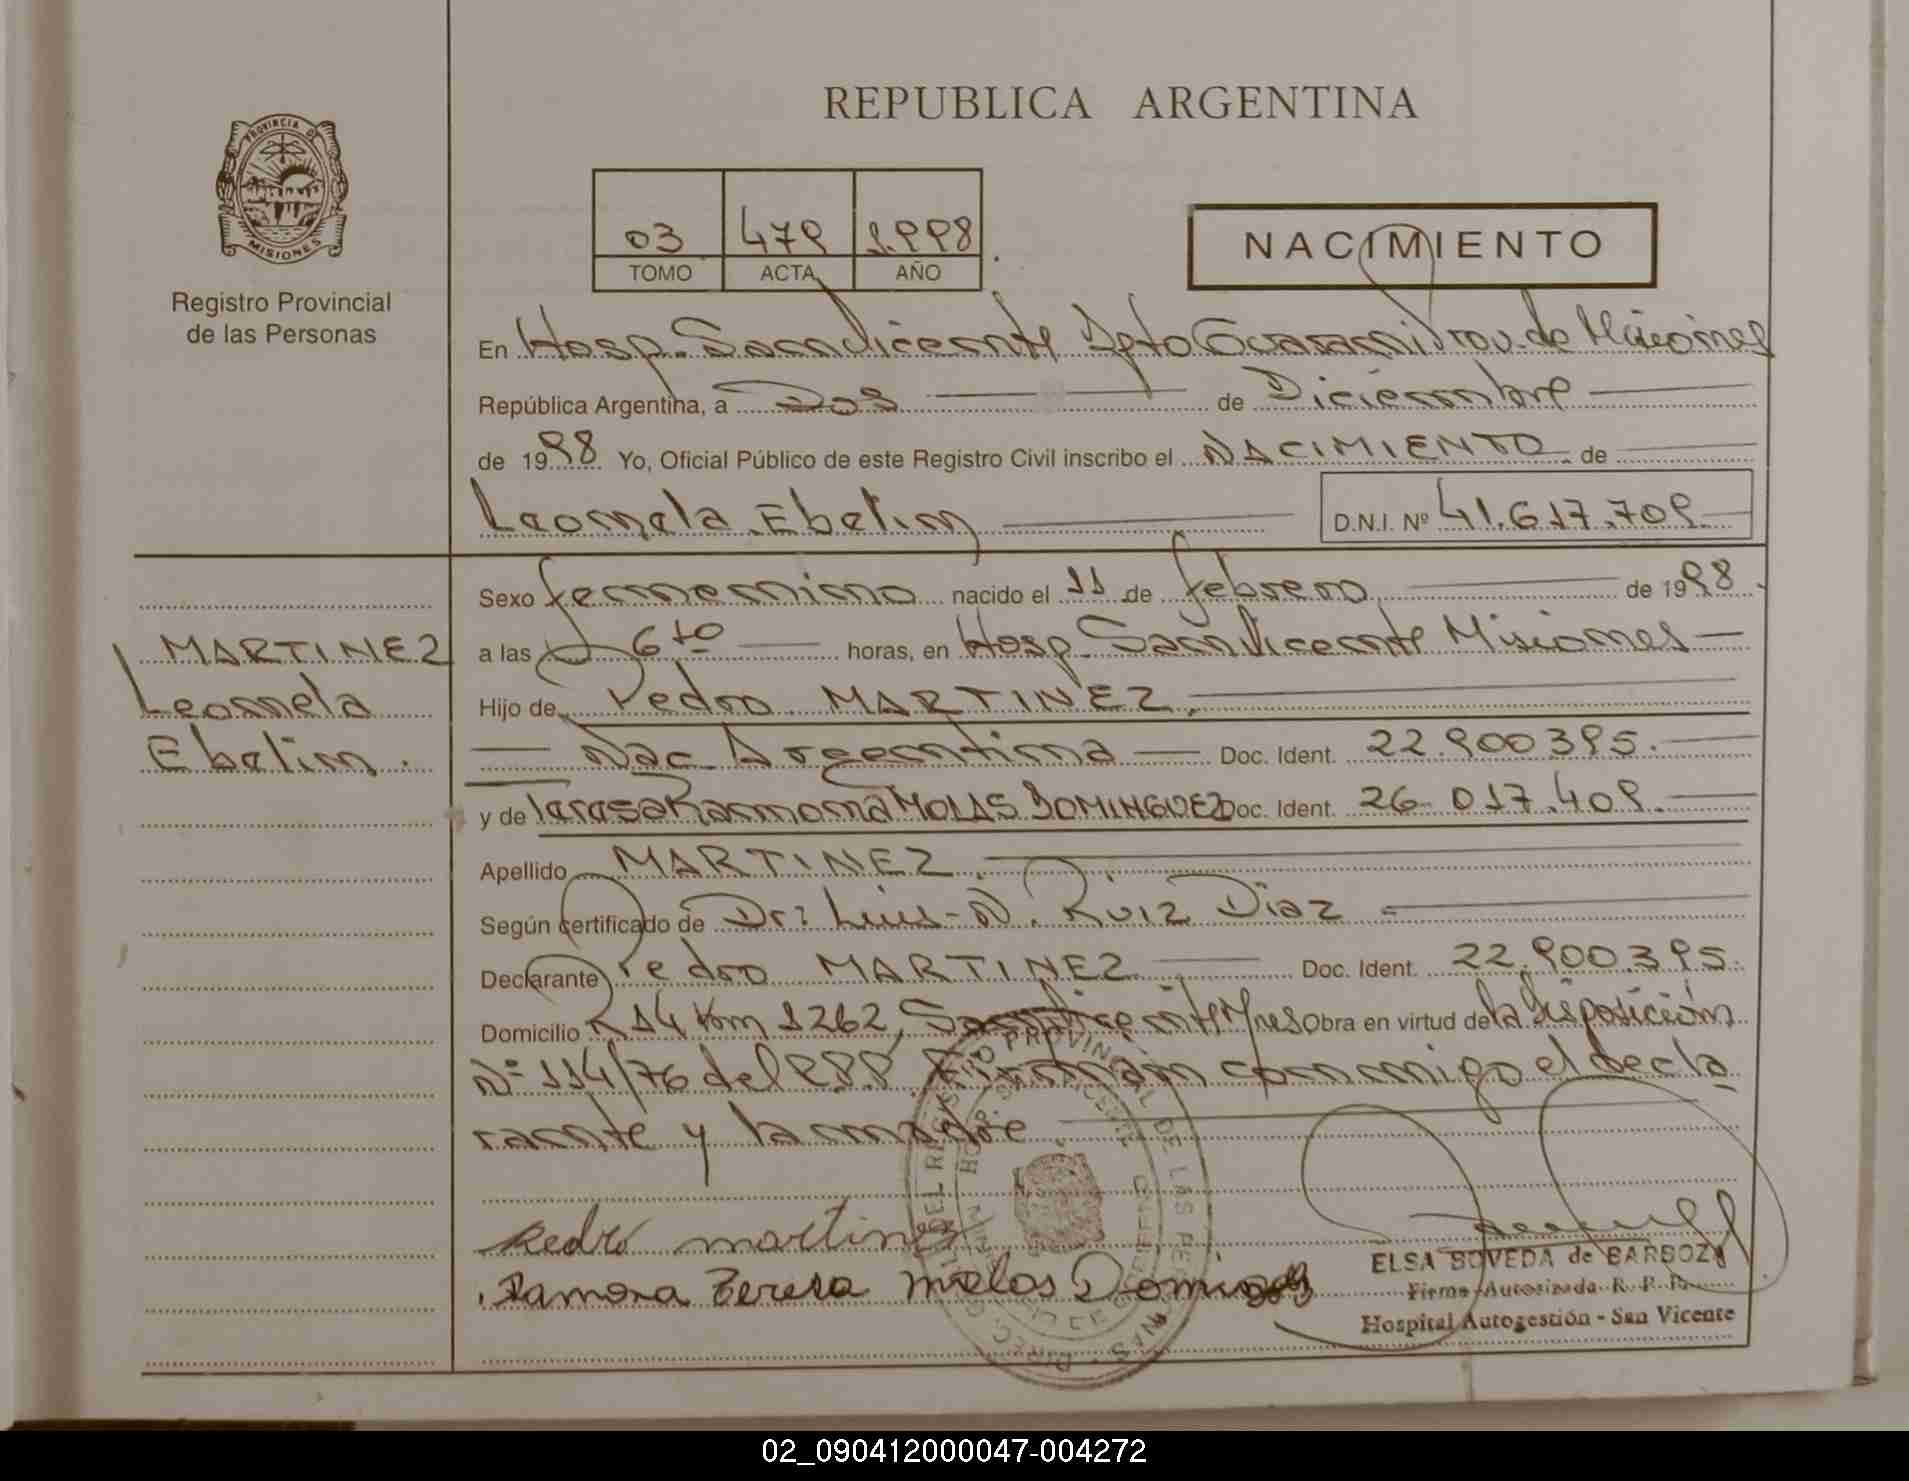 REPUBLICA ARGENTINA
PROVINCIA DE
MISIONES
Registro Provincial
de las Personas
03 479 1.998
TOMO ACTA AÑO
NACIMIENTO
En Hosp. San Vicente Dpto Guarani Prov. de Misiones
República Argentina, a Dos de Diciembre
de 1998 Yo, Oficial Público de este Registro Civil inscribo el NACIMIENTO de
Leonela Ebelin D.N.I. Nº 41.617.709
MARTINEZ
Leonela
Ebelin.
Sexo femenino nacido el 11 de febrero de 1998
a las 6 10 horas, en Hosp. San Vicente Misiones
Hijo de Pedro MARTINEZ,
Nac. Argentina Doc. Ident. 22.900395.
y de Teresa Ramona MOLAS DOMINGUEZ Doc. Ident. 26.017.409.
Apellido MARTINEZ.
Según certificado de Dr: Luis N. Ruiz Diaz
Declarante Pedro MARTINEZ Doc. Ident. 22.900.395.
Domicilio R 14 Km 1262, San Vicente Mnes Obra en virtud de la Disposición
Nº 114/76 del RPP. Firman conmigo el decla
rante y la madre.
Pedro martinez
Ramona Teresa molas Doming
ELSA SOVEDA de BARBOZA
Firma Autorizada R. P. P.
Hospital Autogestión - San Vicente
02_090412000047-004272